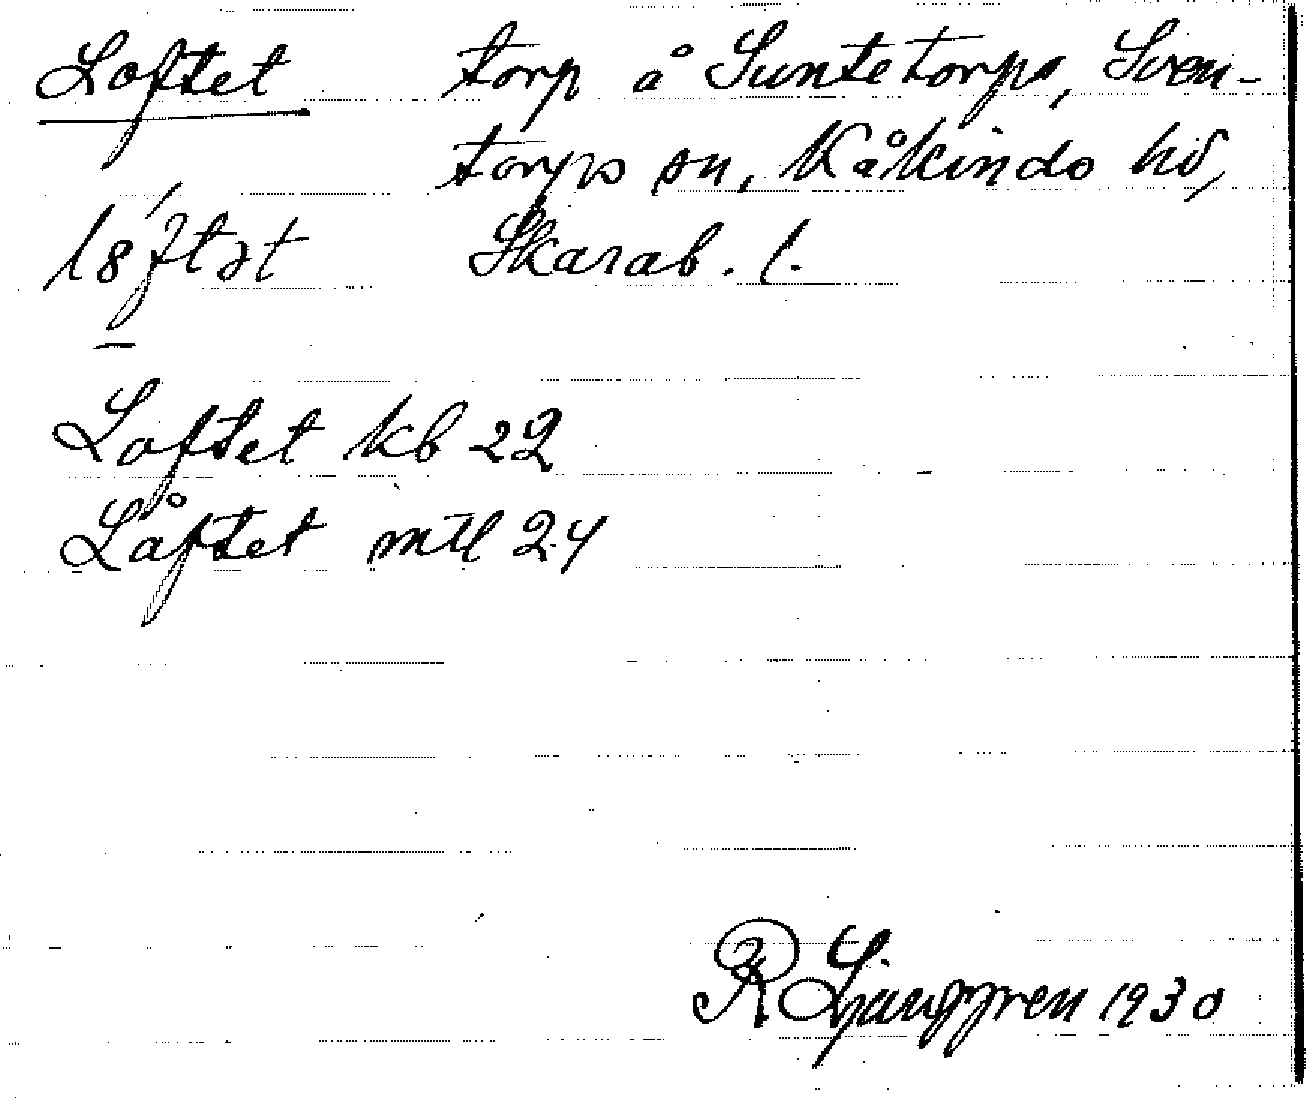 Loftet torp å Suntetorps, Sven-
torps sn, Kåkinds hd,
l8́ftət Skarab. l.
Loftet kb 22
Låftet mtl 24
R Ljunggren 1930